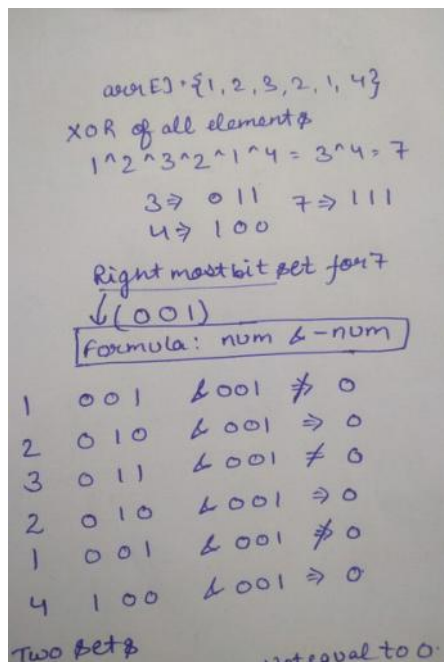 arr[]={1,2,3,2,1,4}
XOR of all elements
1^2^3^2^1^4 = 3^4 = 7
3⇒ 011 7⇒ 111
4⇒ 100
Right most bit set for 7
↓(001)
Formula: num & -num
1 001 & 001 ⇏ 0
2 010 & 001 ⇒ 0
3 011 & 001 ≠ 0
2 010 & 001 ⇒ 0
1 001 & 001 ⇏ 0
4 100 & 001 ⇒ 0
Two sets
not equal to 0.